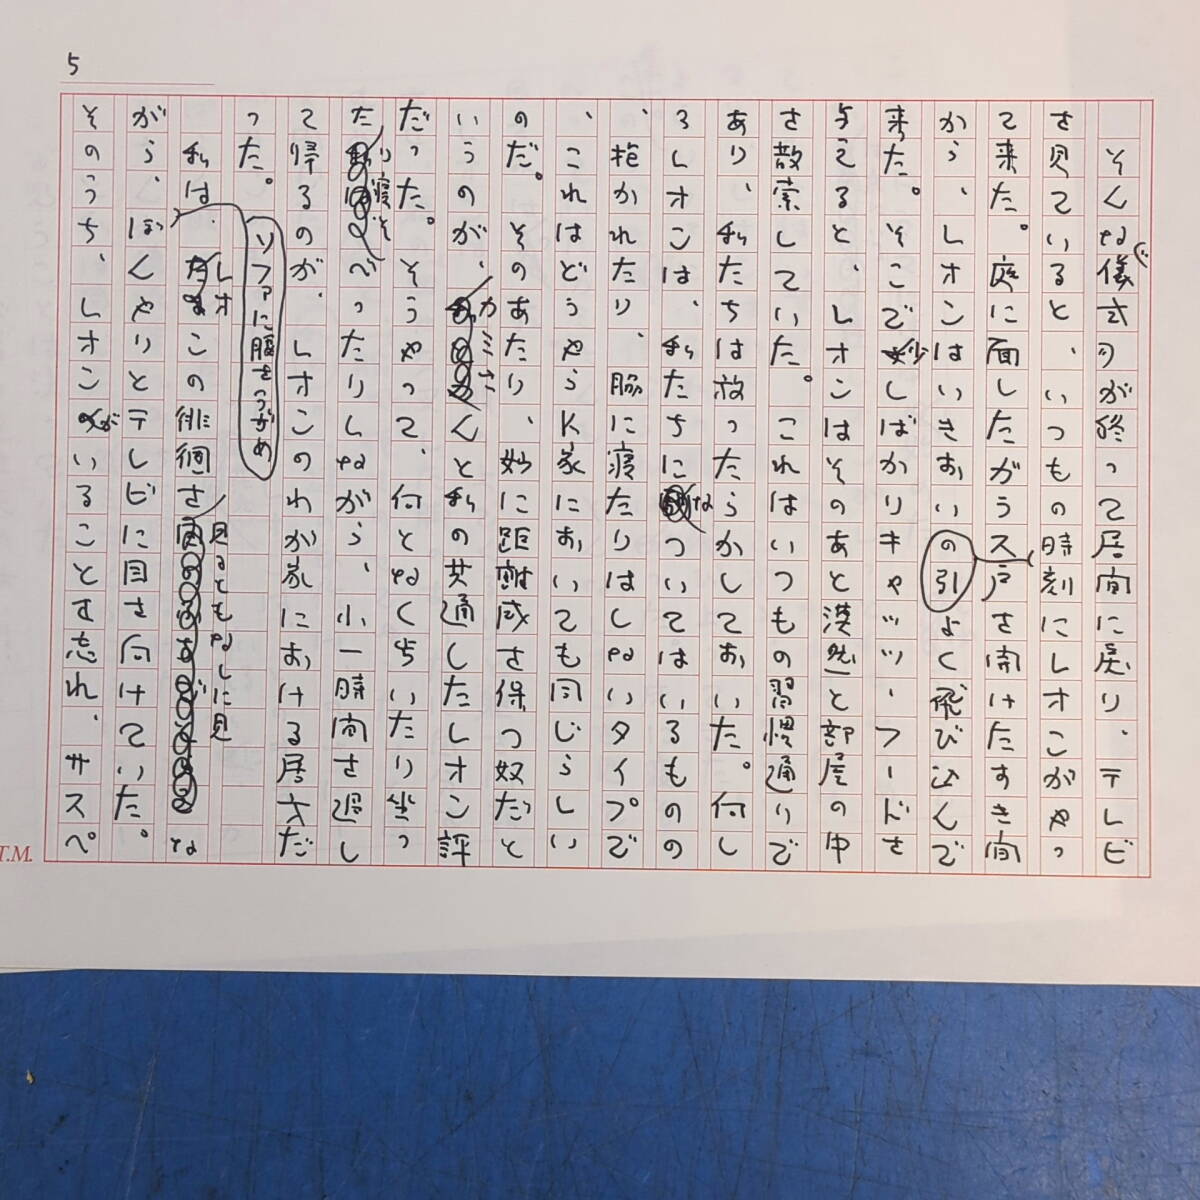 5
そんな儀式が終って居間に戻り、テレビ
を見ていると、いつもの時刻にレオンがやっ
て来た。庭に面したガラス戸を開けたすき間
から、レオンはいきおいよく飛び込んで
の引
来た。そこで少しばかりキャッツ・フードを
与えてやると、レオンはそのあと漠然と部屋の中
を散索していた。これはいつもの習慣通りで
あり、私たちは放ったらかしておいた。何し
ろレオンは、私たちになついてはいるものの
、抱かれたり、脇に寝たりはしないタイプで
、これはどうやらK家においても同じらしい
のだ。そのあたり、妙に距離感を保つ奴だと
いうのが、カミさんと私の共通したレオン評
だった。そうやって、何となく歩いたり坐っ
たり寝そべったりしながら、小一時間を過し
て帰るのが、レオンのわが家における居方だ
った。
ソファに腰をうずめ
私は、レオンの徘徊を見るともなしに見な
がら、ぼんやりとテレビに目を向けていた。
そのうち、レオンがいることを忘れ、サスペ
T.M.